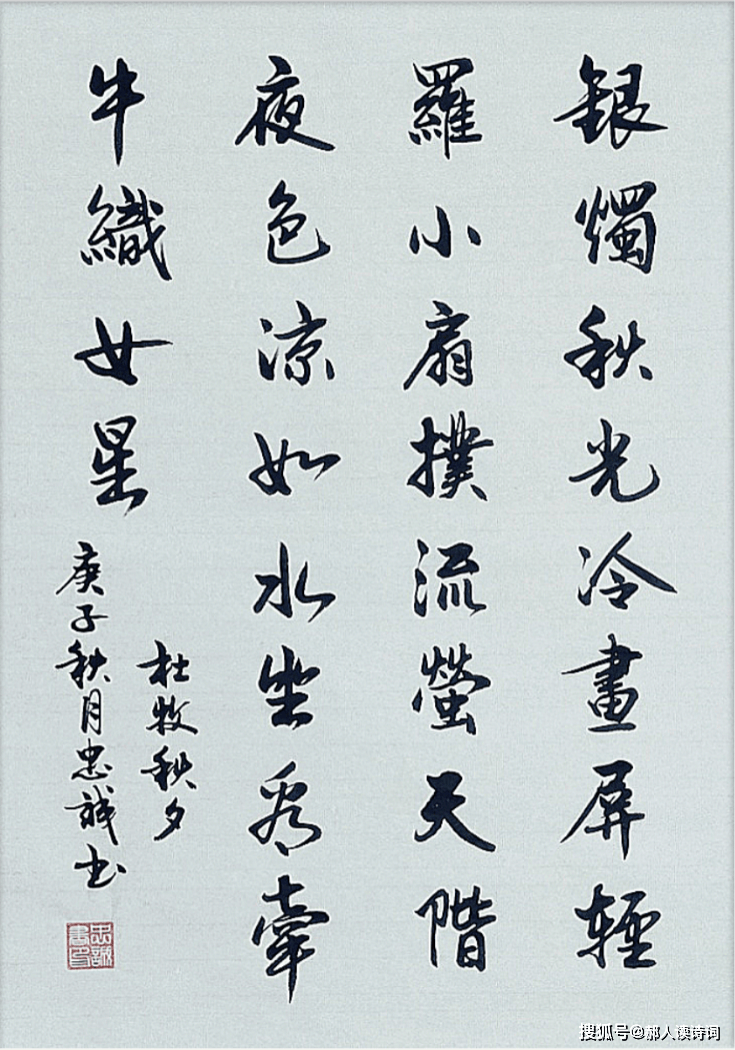 銀燭秋光冷畫屏輕
羅小扇撲流螢天階
夜色涼如水坐看牽
牛織女星
杜牧秋夕
庚子秋月忠誠书
忠誠書印
搜狐号@郝人读诗词